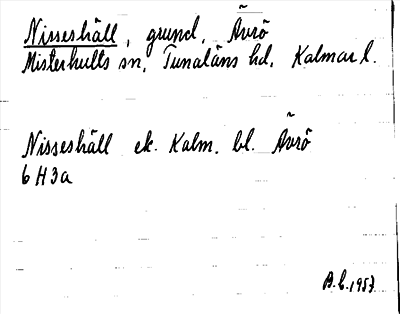 Nisseshäll, grund, Ävrö
Misterhults sn, Tunaläns hd, Kalmar l.
Nisseshäll ek. Kalm. bl. Ävrö
6H3a
1957